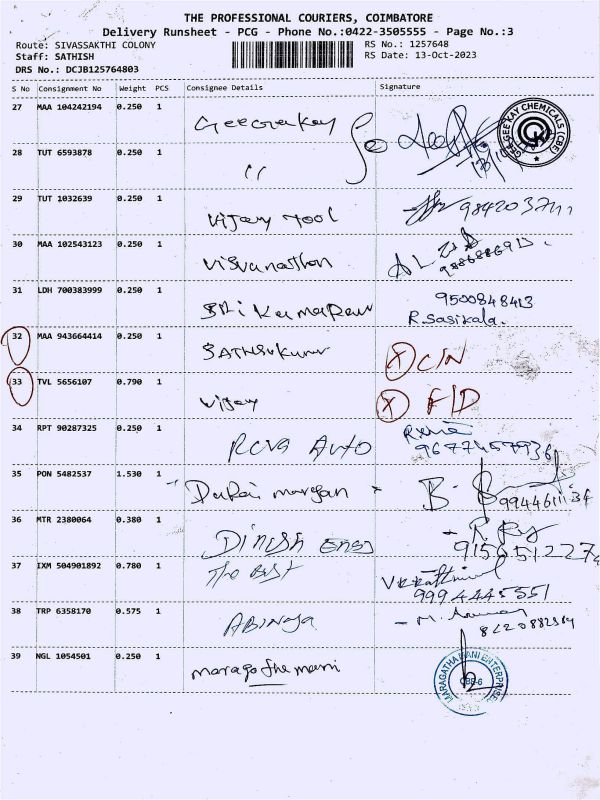 THE PROFESSIONAL COURIERS, COIMBATORE
Delivery Runsheet - PCG - Phone No.:0422-3505555 - Page No.:3
Route: SIVASSAKTHI COLONY
RS No.: 1257648
Staff: SATHISH
RS Date: 13-Oct-2023
DRS No.: DCJB125764803
S No Consignment No Weight PCS Consignee Details Signature
27 MAA 104242194 0.250 1 Geegeekay
GEEGEEKAY CHEMICALS (CBE)
28 TUT 6593878 0.250 1 ''
29 TUT 1032639 0.250 1 Vijay Tool
30 MAA 102543123 0.250 1 Visvanathan
31 LDH 700383999 0.250 1 Sri Kumaran 9500848413
R.Sasikala.
32 MAA 943664414 0.250 1 X C/N
33 TVL 5656107 0.790 1 Vijay X F/D
34 RPT 90287325 0.250 1 Rova Auto 9677457936
35 PON 5482537 1.530 1 Durai murgan B. 9944611134
36 MTR 2380064 0.380 1 Dinesh Engg 9156512274
37 IXM 504901892 0.780 1 The Best 9994445551
38 TRP 6358170 0.575 1 Abinaya - M.
39 NGL 1054501 0.250 1 maragathamani
MARAGATHAMANI ENTERPRISE
CBE-6